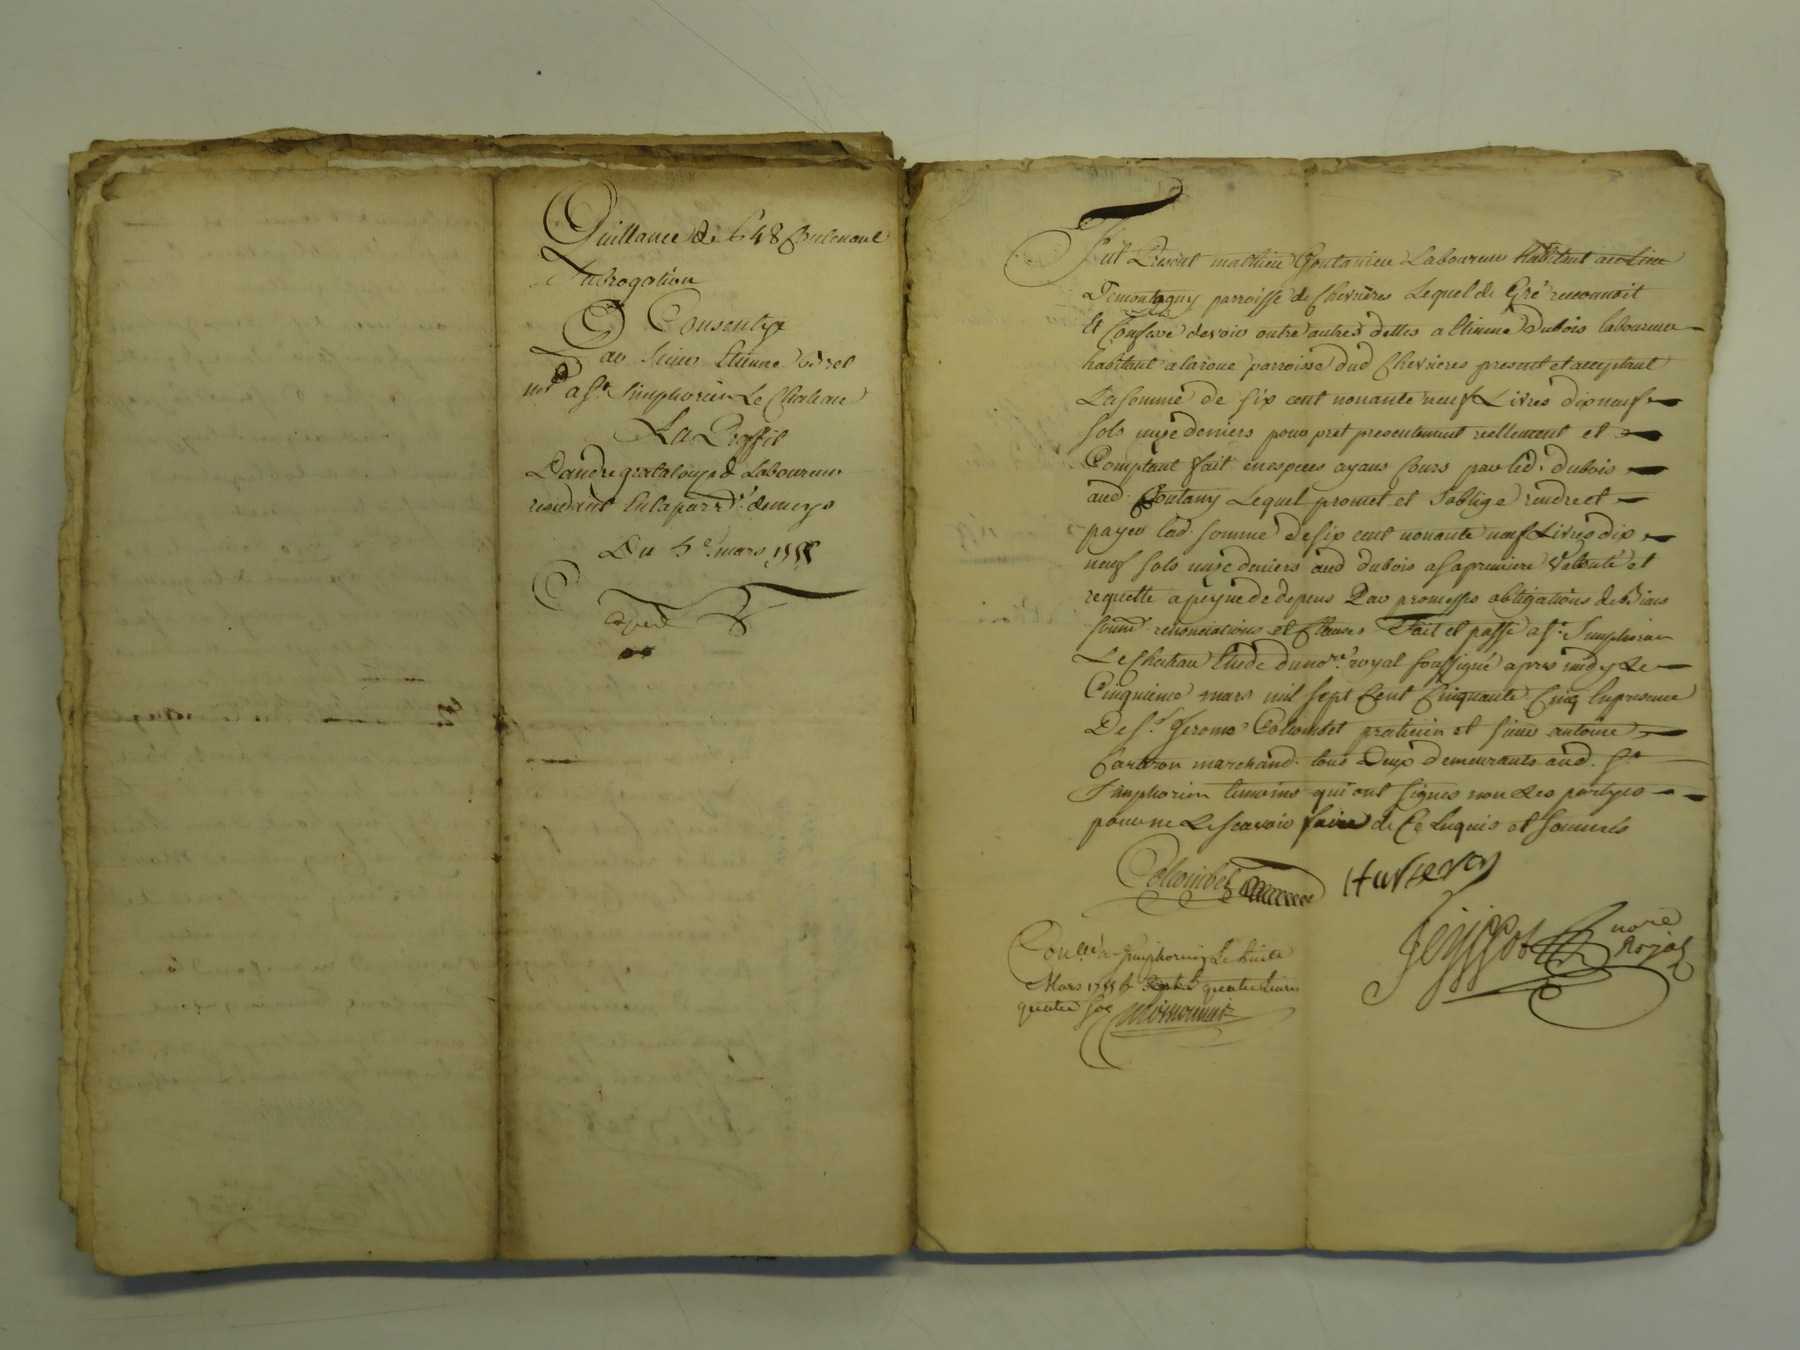 Quittance de 648
Subrogation
Consentye
Par Sieur Etienne
a St Simphorien Le Chateau
Au Proffit
D'andre grataloup Laboureur
residant En la parr.e demeys
Du 5e mars 1755
Fut Present mathieu Goutanieu Laboureur habitant au Lieu
De montagny parroisse de Chevrieres Lequel de Gré reconnoit
Et Confesse devoir outre autres dettes a Etienne Dubois laboureur
habitant a laroue parroisse dud Chevrieres present et acceptant
La somme de six cent nonante neuf Livres dix neuf
sols unze deniers pour pret presentement reellement et
Comptant fait en especes ayans cours par led. dubois
aud. Goutany Lequel promet et s'oblige rendre et
payer lad. somme de six cent nonante neuf Livres dix
neuf sols unze deniers aud dubois a sa premiere Volonté et
requette a peyne de depens Par promesses obligations de Biens
soum.s renonciations et Clauses Fait et passé a St. Simphorien
Le Chateau Etude du no.re royal soussigné apres midy Le
Cinquieme mars mil sept Cent Cinquante Cinq En presence
De Sr. Jerome Colombet praticien et sieur antoine
marchand tous Deux demeurants aud. St
Simphorien temoins qui ont signés non Les partyes
pour ne Le scavoir faire de Ce Enquis et sommés
Colombet
no.re
Royal
Con.llé a St Simphorien Le huit
Mars 1755 quatre livres
quatre sols